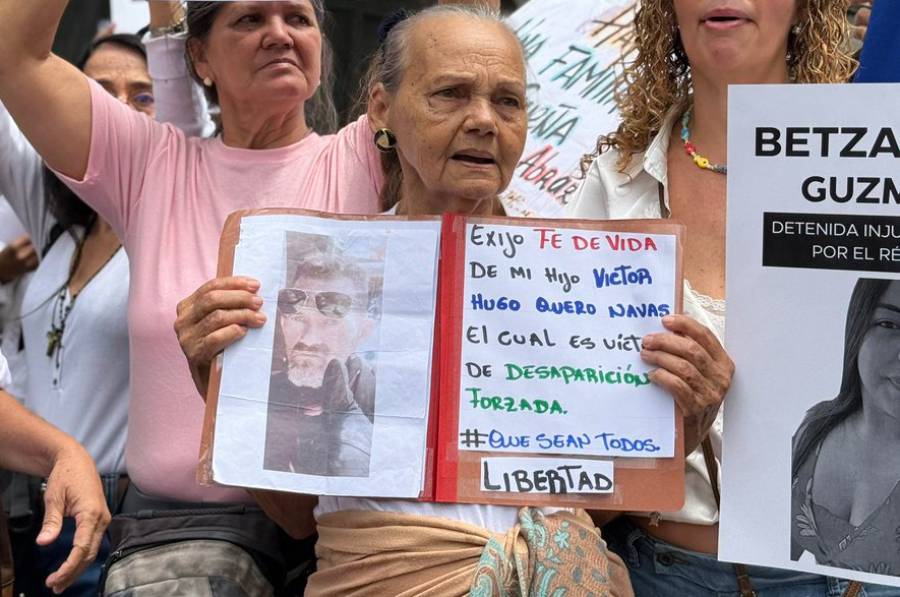 EXIJO FE DE VIDA
DE MI HIJO VICTOR
HUGO QUERO NAVAS
EL CUAL ES
DE DESAPARICIÓN
FORZADA.
#QUE SEAN TODOS.
LIBERTAD
FAMILI
BETZA
GUZM
DETENIDA INJU
POR EL RÉ